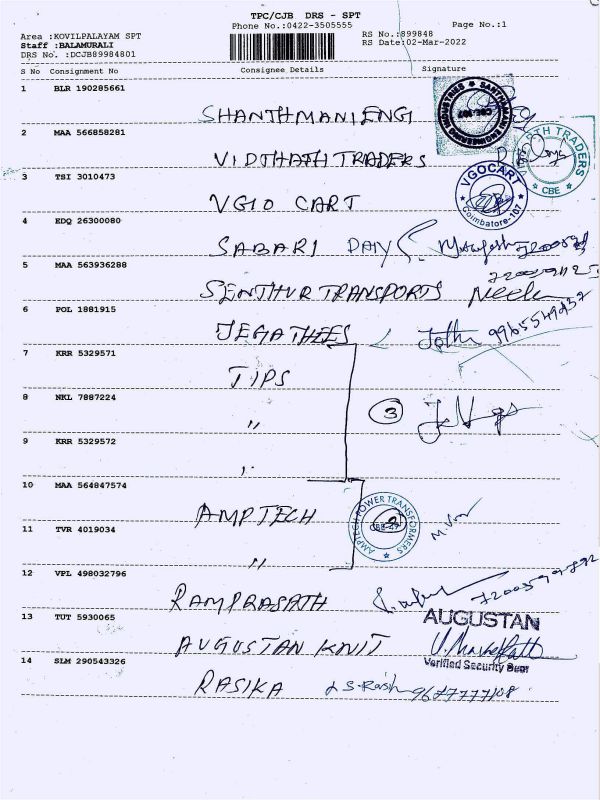 TPC/CJB DRS - SPT
Phone No.:0422-3505555
Page No.:1
Area :KOVILPALAYAM SPT
Staff :BALAMURALI
DRS No. :DCJB89984801
RS No.:899848
RS Date:02-Mar-2022
S No Consignment No Consignee Details Signature
1 BLR 190285661 SHANTHMANI ENGI
SANTHAMANI ENGINEERING INDUSTRIES
2 MAA 566858281 VIDTHATH TRADERS
TRADERS
CBE
3 TSI 3010473 VGIO CART
VGOCART
Coimbatore-107
4 EDQ 26300080 SABARI DAIY
5 MAA 563936288 SENTHUR TRANSPORTS
6 POL 1881915 JEGATHEES
7 KRR 5329571 TIPS
8 NKL 7887224 "
3
9 KRR 5329572 "
10 MAA 564847574 AMPTECH
AMPTECH POWER TRANSFORMERS
11 TVR 4019034 "
12 VPL 498032796 RAMPRASATH
13 TUT 5930065 AUGUSTAN KNIT
AUGUSTAN
Verified Security Dept
14 SLM 290543326 RASIKA